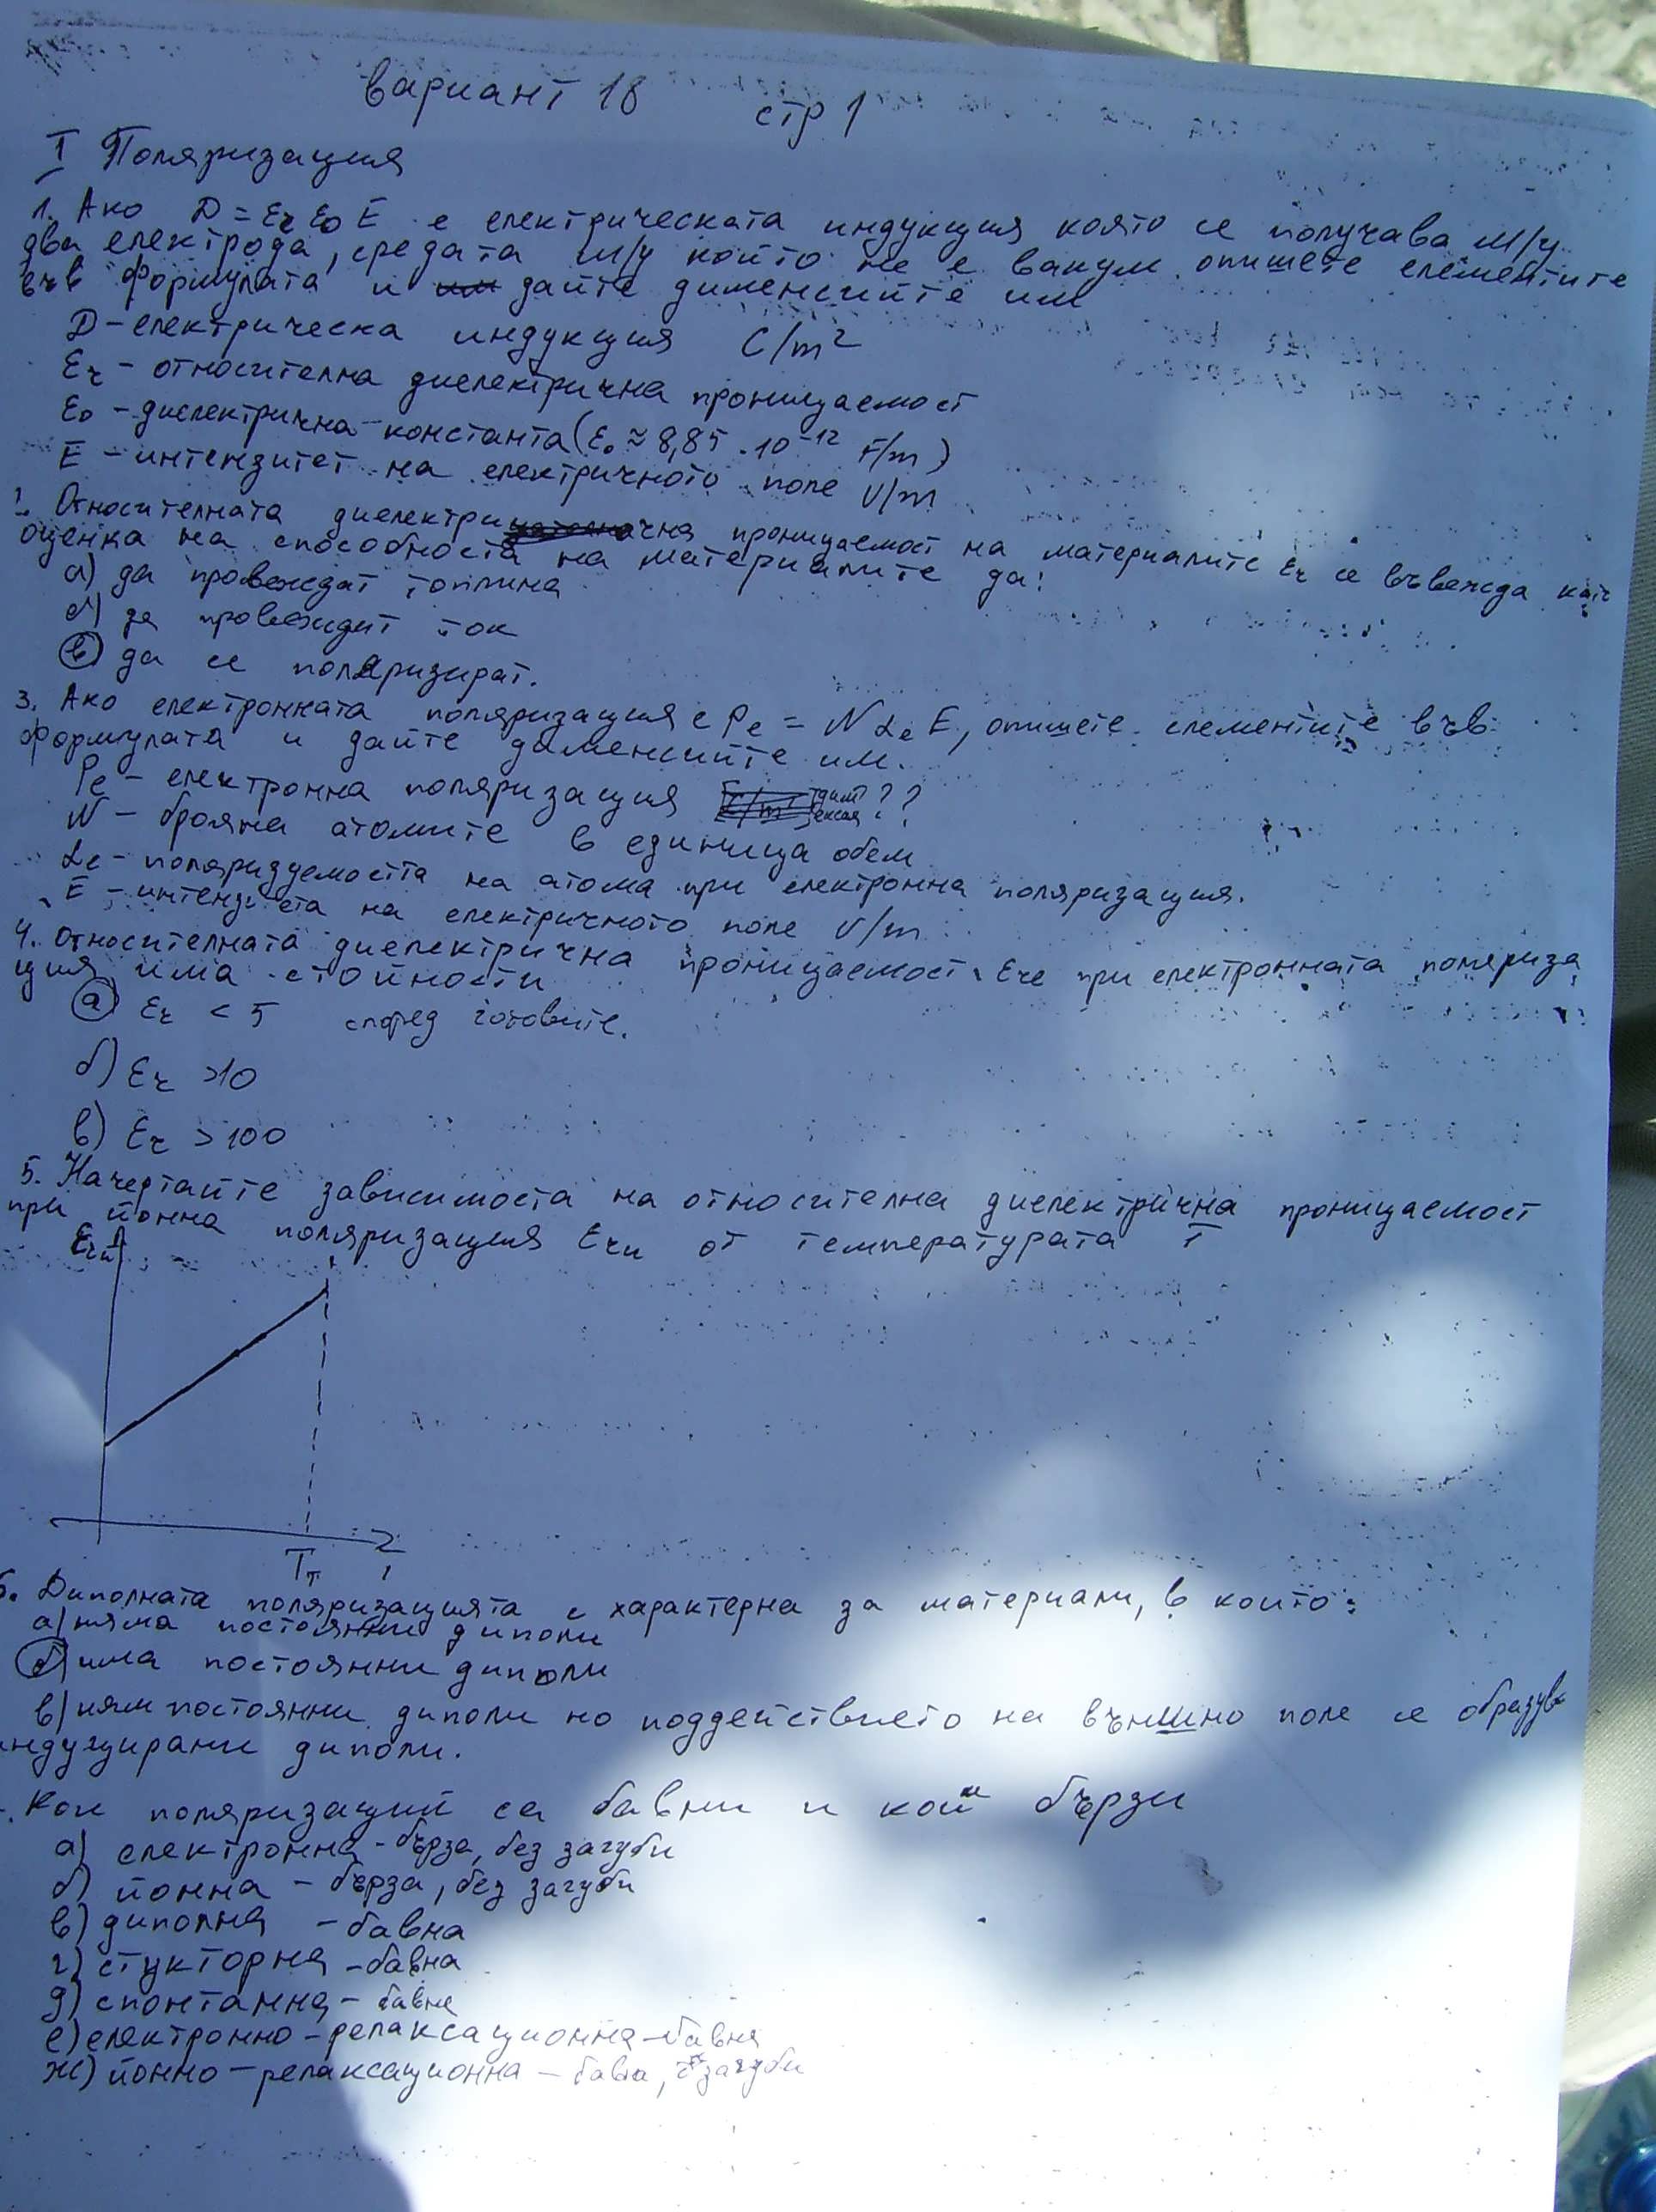 вариант 18 стр 1
I Поляризация
1. Ако D = εr ε0 E е електрическата индукция която се получава м/у
два електрода, средата м/у който не е вакум опишете елементите
във формулата и дайте дименсиите им
D - електрическа индукция C/m²
εr - относителна диелектрична проницаемост
ε0 - диелектрична константа (ε0 ≈ 8,85 . 10⁻¹² F/m)
E - интензитет на електричното поле V/m
Относителната диелектрична проницаемост на материалите εr се въвежда като
оценка на способноста на материалите да:
а) да провеждат топлина
б) да провеждат ток
в) да се поляризират.
3. Ако електронната поляризация е Pe = N αe E, опишете елементите във
формулата и дайте дименсиите им.
Pe - електронна поляризация ??
N - брояна атомите в единица обем
αe - поляризуемостта на атома при електронна поляризация.
E - интензитета на електричното поле V/m
4. Относителната диелектрична проницаемост εre при електронната поляриза
ция има стойности
а) εr < 5 според готовите.
б) εr >10
в) εr > 100
5. Начертайте зависимоста на относителна диелектрична проницаемост
при йонна поляризация εrи от температурата T
εrи
Tт T
6. Диполната поляризацията е характерна за материали, в които:
а) няма постоянни диполи
б) има постоянни диполи
в) ням постоянни диполи но поддействието на външно поле се образув
индуцирани диполи.
Кои поляризаций са бавни и кои бързи
а) електронна - бърза, без загуби
б) йонна - бърза, без загуби
в) диполна - бавна
г) стукторна - бавна
д) спонтанна - бавна
е) електронно - релаксационна - бавна
ж) йонно - релаксационна - бавна, загуби